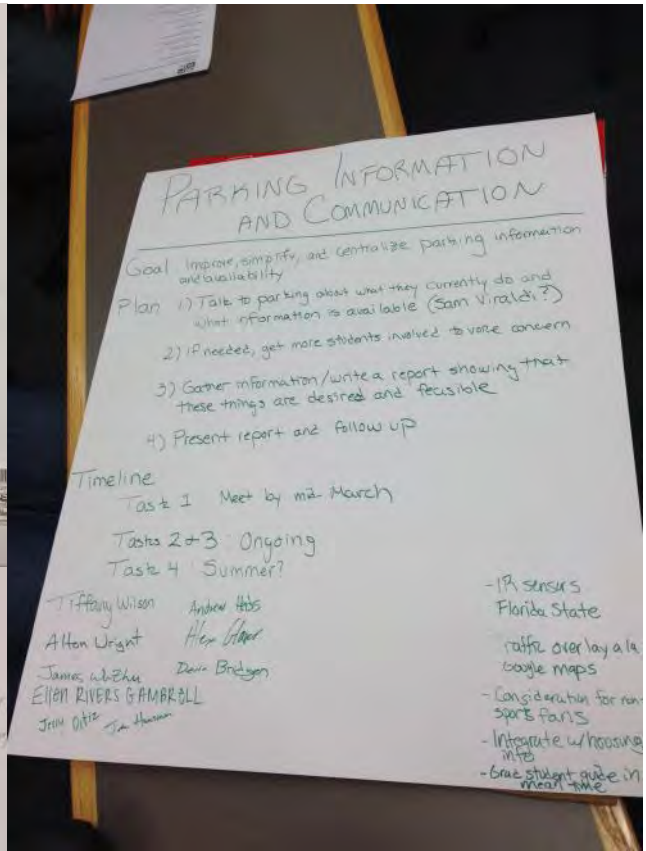 PARKING INFORMATION
AND COMMUNICATION
Goal Improve, simplify, and centralize parking information
and availability
Plan 1) Talk to parking about what they currently do and
what information is available (Sam Viraldi?)
2) If needed, get more students involved to voice concern
3) Gather information/write a report showing that
these things are desired and feasible
4) Present report and follow up
Timeline
Task 1 Meet by mid-March
Tasks 2+3: Ongoing
Task 4 Summer?
Tiffany Wilson Andrew
Alton Wright
James Devin Bridgen
Ellen RIVERS GAMBRELL
Jerry Ortiz
- IR sensors
Florida State
traffic overlay a la
google maps
- Consideration for non-
sports fans
- Integrate w/housing
info
- Grad student guide in
mean time